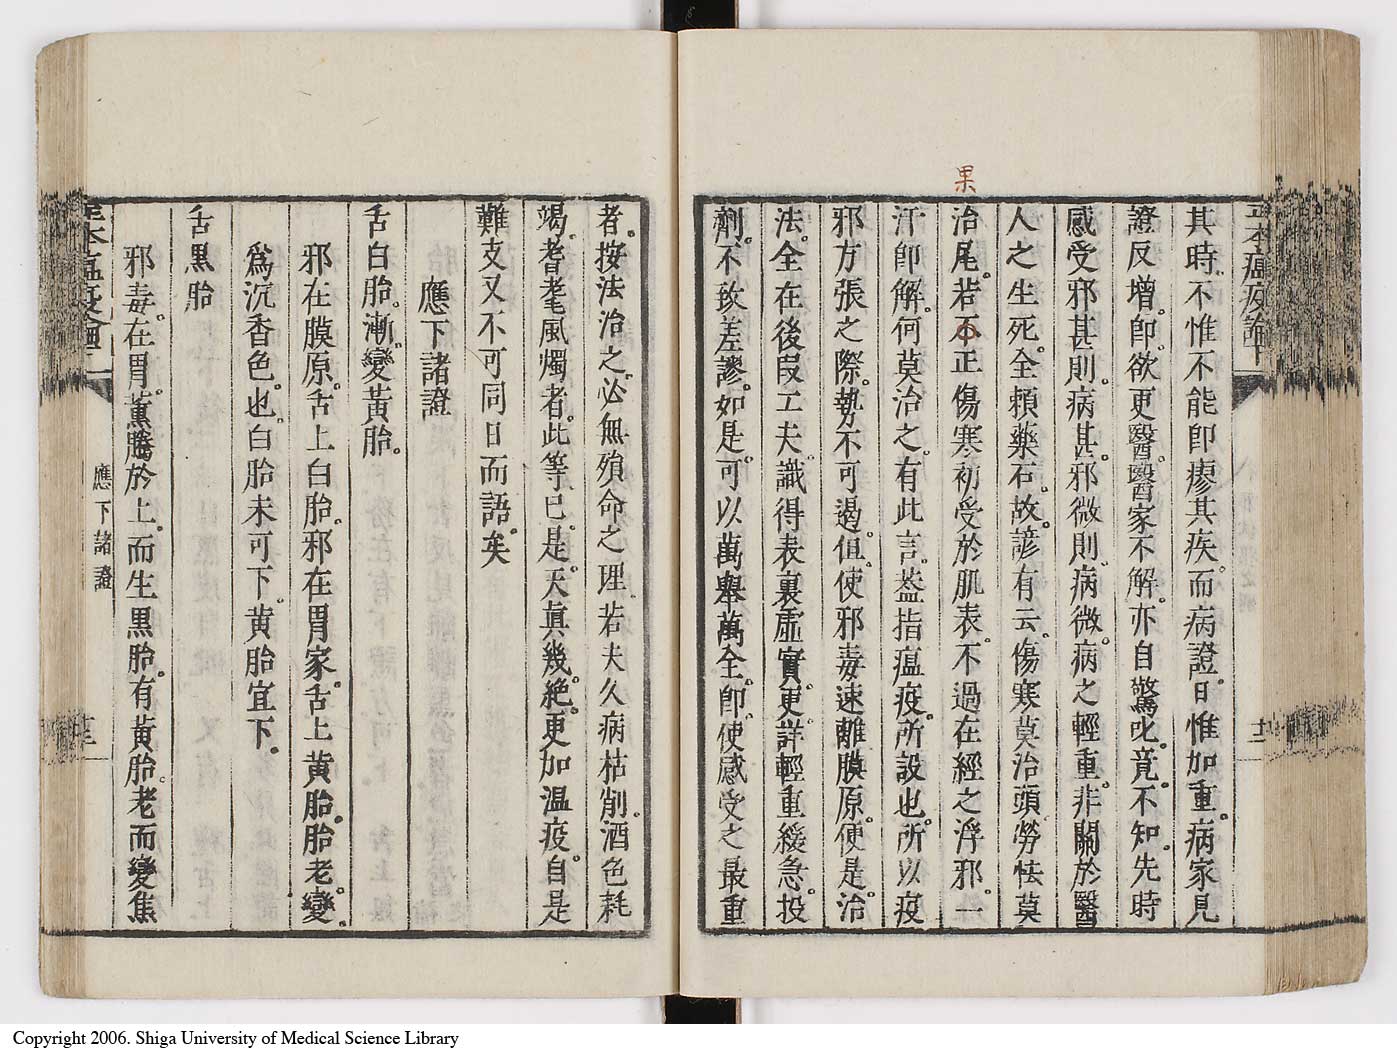 果
其時。不惟不能即瘳其疾。而病證日惟加重。病家見
證反增。即欲更醫。醫家不解。亦自驚叱。竟不知先時
感受邪甚則病甚。邪微則病微。病之輕重。非關於醫
人之生死。全賴藥石。故諺有云。傷寒莫治頭勞怯莫
治尾。若不正傷寒初受於肌表。不過在經之浮邪。一
汗即解。何莫治之。有此言。葢指瘟疫。所設也。所以疫
邪方張之際。勢不可遏。但使邪毒速離膜原。便是治
法。全在後叚工夫識得表裏虛實。更詳輕重緩急。投
劑。不致差謬。如是可以萬舉萬全。即使感受之最重
者。按法治之。必無殞命之理若夫久病枯削。酒色耗
竭。耆耄風燭者。此等已是天眞幾絶。更加溫疫。自是
難支又不可同日而語矣
應下諸證
舌白胎。漸變黃胎。
邪在膜原。舌上白胎。邪在胃家。舌上黄胎。胎老變
爲沉香色也。白胎未可下。黄胎宜下。
舌黒胎
邪毒。在胃。薰騰於上。而生黒胎。有黄胎。老而變焦
應下諸證